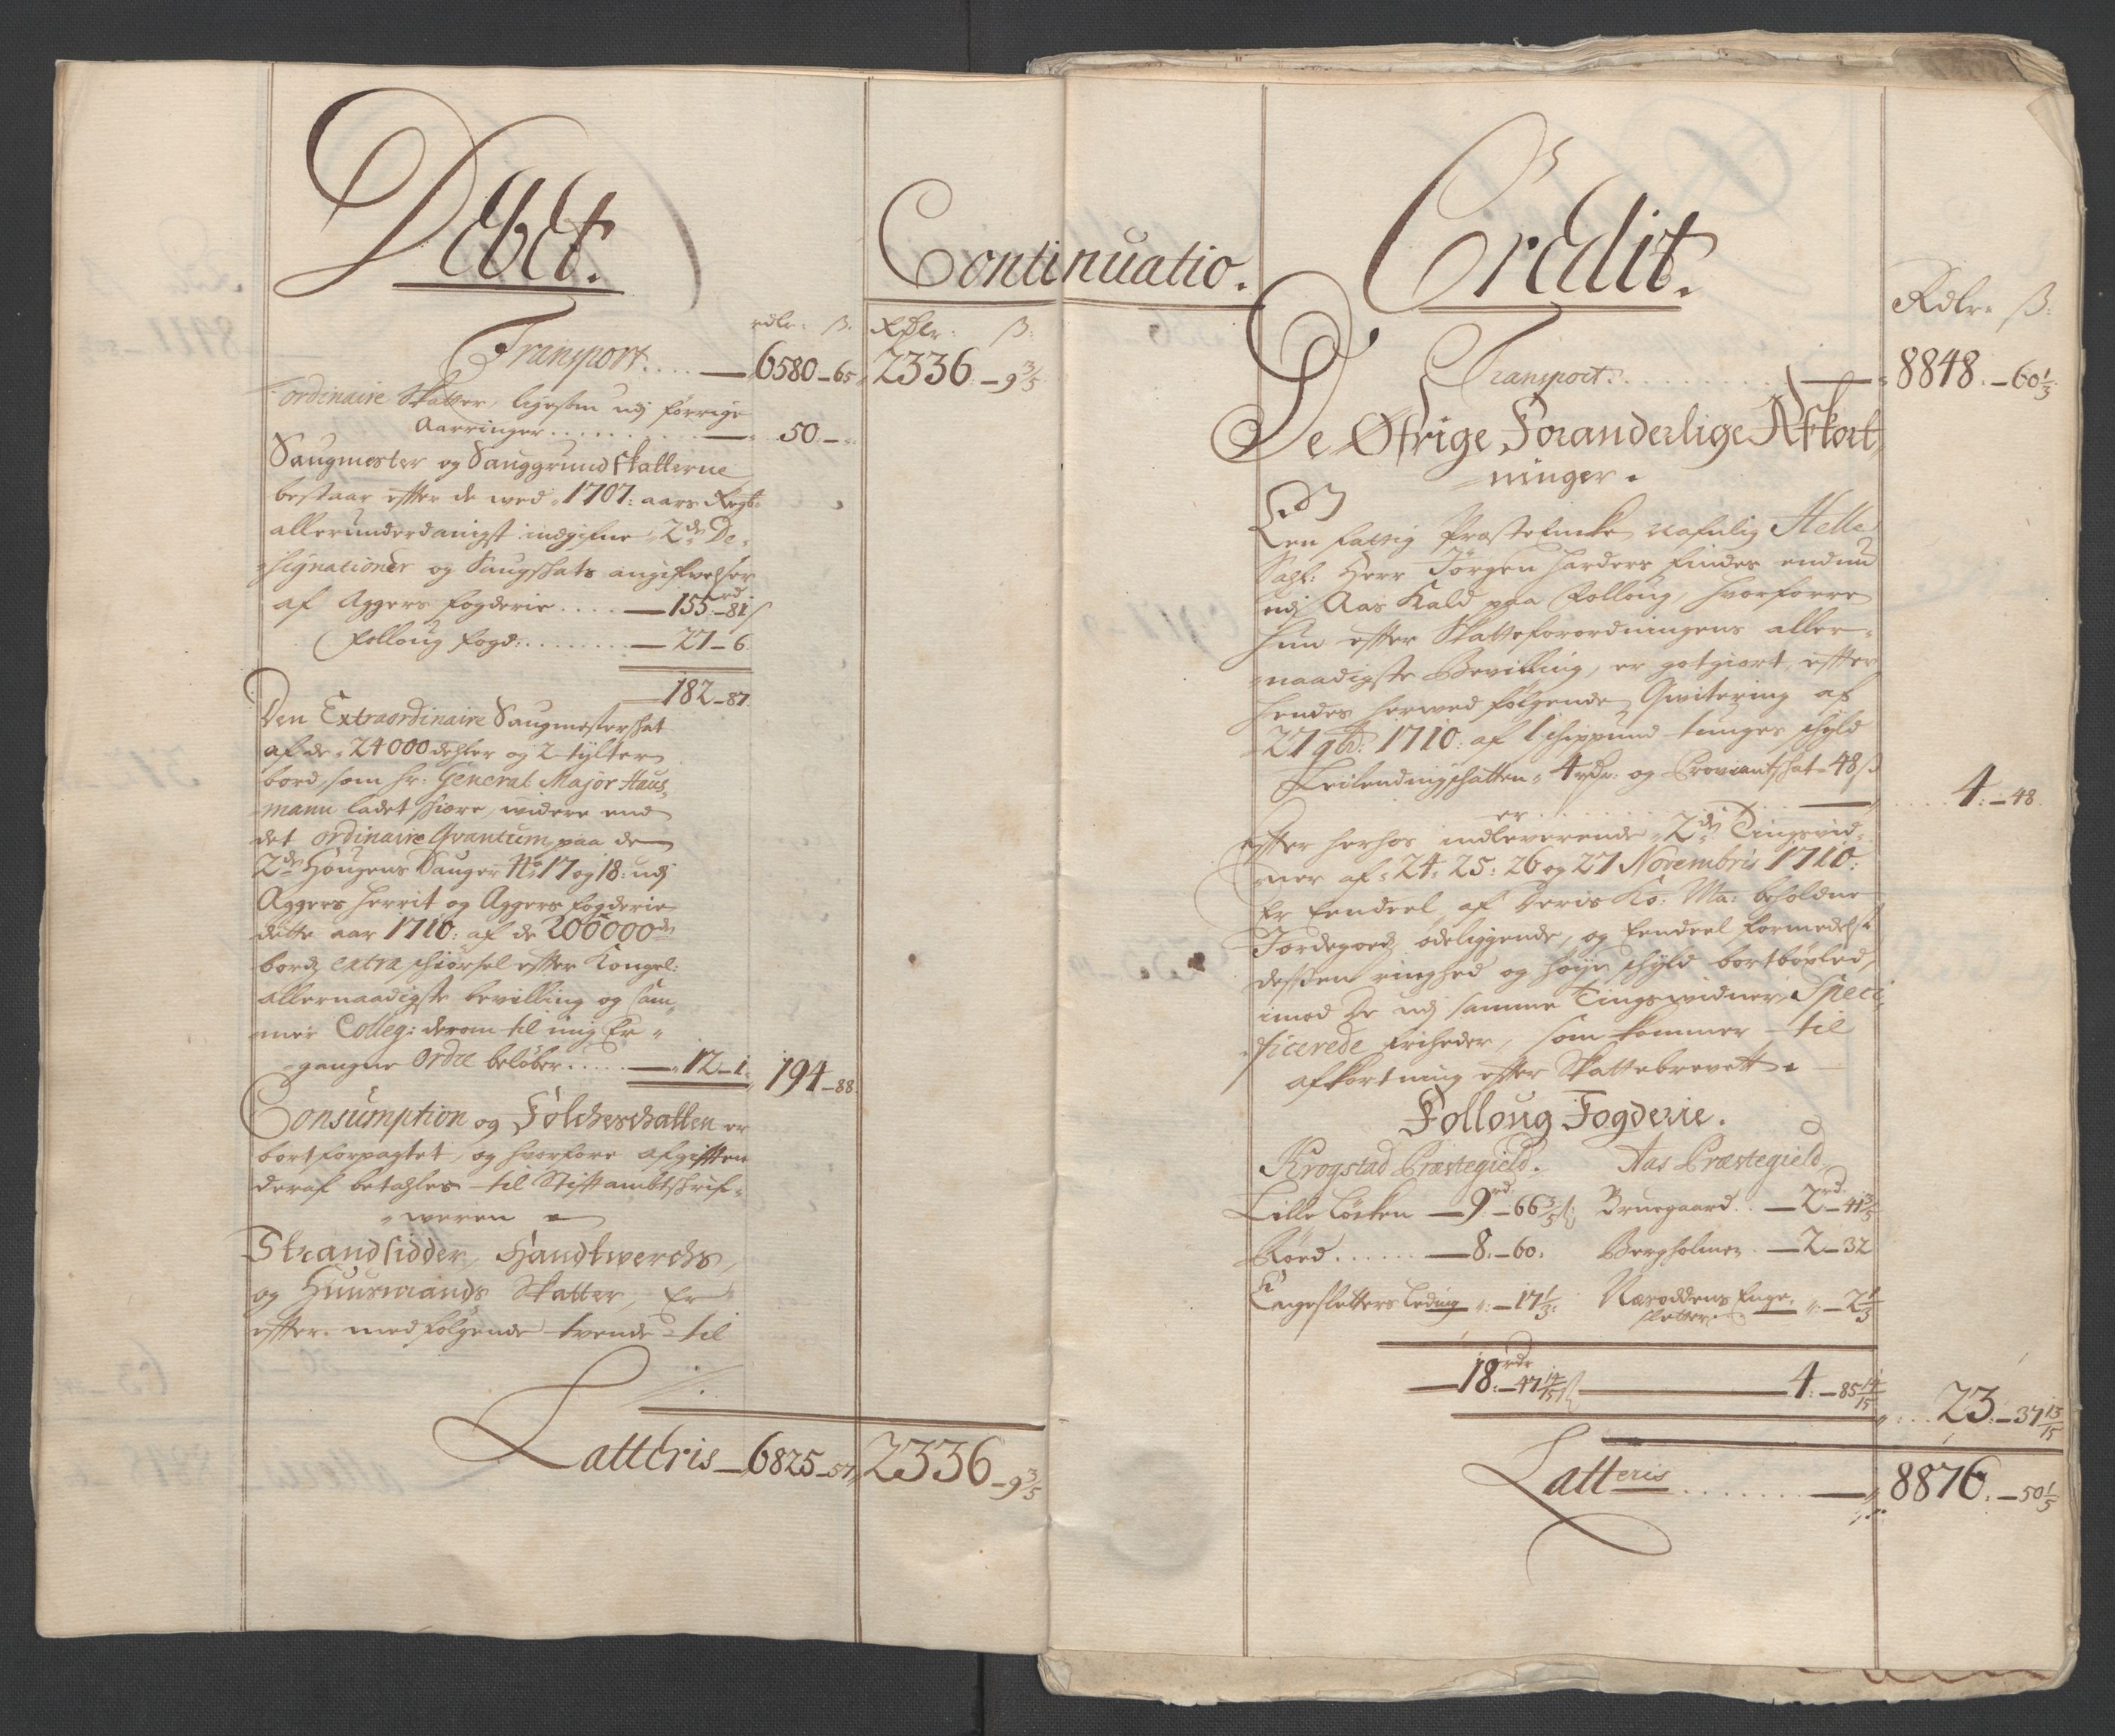 Debet.
Continuatio.
rdlr: ß. Rdlr: ß:
Transport.... — 6580 – 65 2336 – 9 3/5
ordinaire Skatter, ligesom udj forrige
Aarringer.......... — 50 –
Saugmester og Sauggrund skatterne
bestaar effter de med 1707: aars Regb:
allerunderdanigst indgifne 2de De-
signationer og Saugskats angifvelser
af Aggers fogderie.... — 155rd – 81ß
Folloug fogd:........ — 27 – 6
182 – 87
Den Extraordinaire Saugmesterskat
af de 24000 dehler og 2 tylter
bord, som hr: General Major Haus-
mann ladet skiære, widere end
det ordinaire Qvantum paa de
2de Hougens Sauger No 17 og 18: udj
Aggers herrit og Aggers fogderie
dette aar 1710: af de 200000de
bord extra skiørsel effter Kongel:
allernaadigste bevilling og Cam-
mer Colleg: derom til mig Er-
gangne Ordre beløber..... — 12 – 1: 194 – 88.
Consumption og Folcheschatten er
bortforpagtet, og hvorfore afgifften
deraf betahles til Stiftambtskrif-
weren
Strandsidder, Handtwerchs,
og Huusmands Skatter, Er
effter medfølgende tvende til
Latteris — 6825 – 57 2336 – 9 3/5
Credit.
Rdlr: ß:
Transport.......... — 8848. – 60 1/3
De Øfrige Foranderlige Afkort-
ninger.
En fattig Præste Encke nafnlig Helle
Sahl: Herr Jörgen Harders findes endnu
udj Aas Kald paa Folloug, hvorforre
hun effter Skatteforordningens aller-
naadigste Bevilling, er gotgiort, effter
hendes herwed følgende Qvitering af
27 9br: 1710: af 1 schippund tunges skyld
Leilendingschatten 4 rdr: og Proviantskat 48 ß
er...... — 4: – 48
Effter herhos indleverende 2de Tingsvid-
ner af 24: 25: 26 og 27 Novembris 1710:
Er Eendeel af Deris Ko: Ma: beholdne
Jordegoeds ødeliggende, og Eendeel formedelst
dessen ringhed og høye skyld bortbøxled,
imod De udj samme Tingswidner Speci-
ficerede friheder, som kommer til
afkortning effter Skattebrevett.
Folloug Fogderie.
Krogstad Præstegield. Aas Præstegield
Lille Löcken — 9rd – 66 3/5 ß Bruegaard.. — 2rd – 41 3/5
Röed...... — 8. – 60: Bergholmen. — 2 – 32
Engesletters Leding „: – 17 1/3: Næsoddens Enge-
sletter. — „: – 2 1/3
— 18rdr: – 47 14/15 ß — 4: – 85 14/15
23. – 37 13/15
Latteris........ — 8876. – 50 1/5